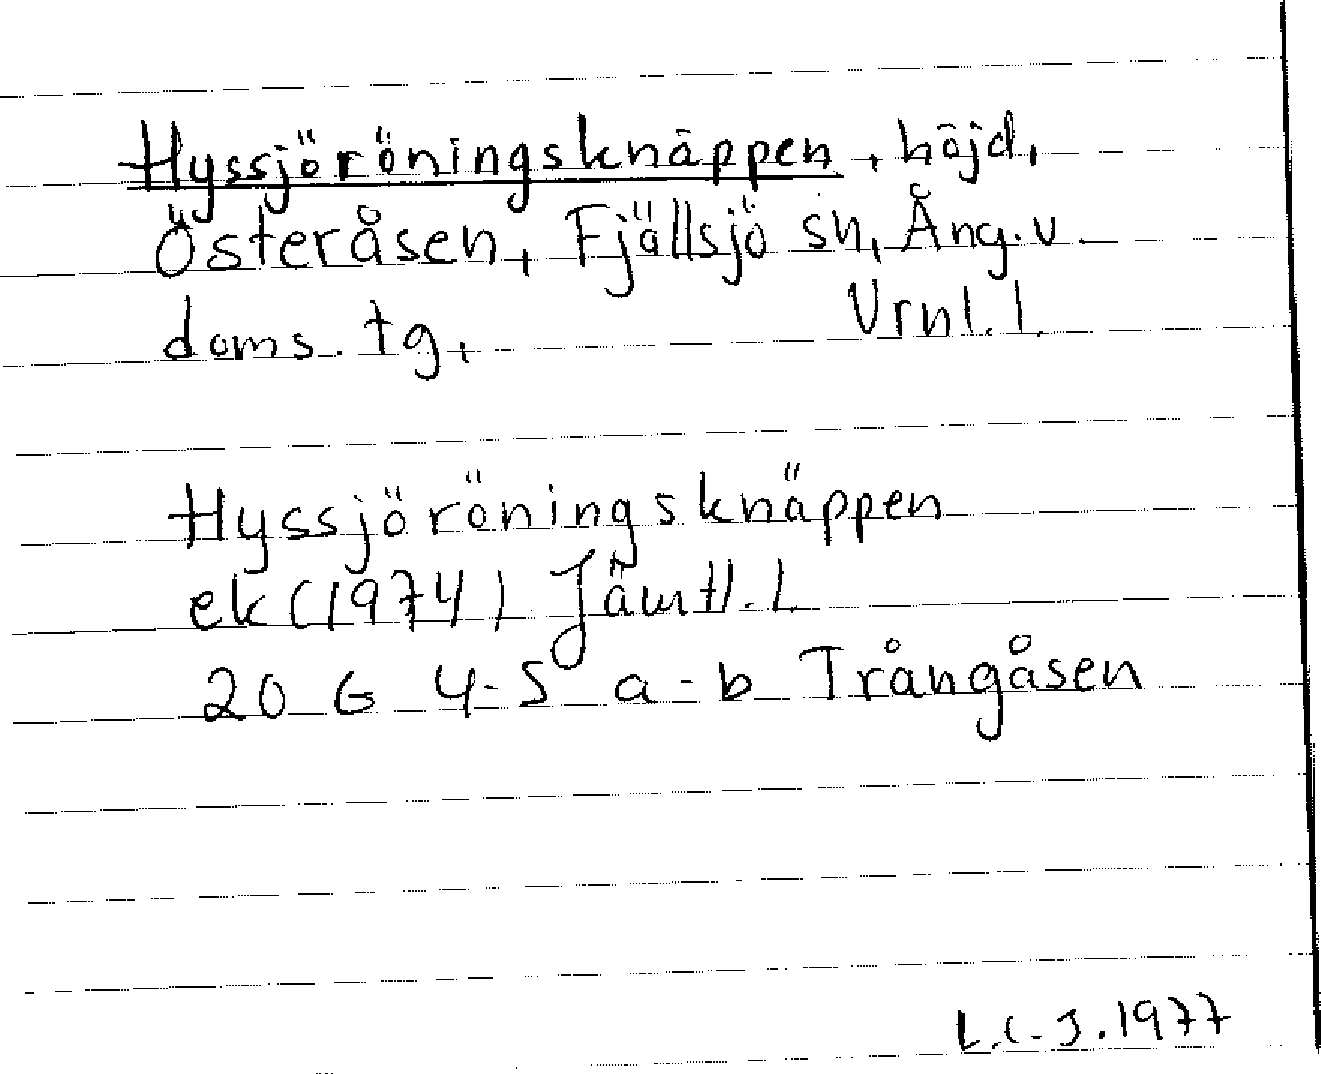 Hyssjöröningsknäppen, höjd,
Österåsen, Fjällsjö sn, Ång. v.
doms. tg. Vrnl. l.
Hyssjöröningsknäppen
ek (1974) Jämtl. l.
20 G 4-5 a-b Trångåsen
L.C.J. 1977